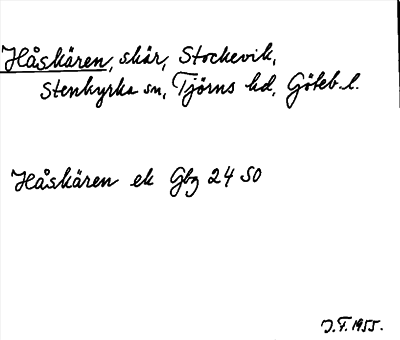 Håskären, skär, Stockevik,
Stenkyrka sn, Tjörns hd, Göteb. l.
Håskären ek Gbg 24 SO
J. F. 1955.